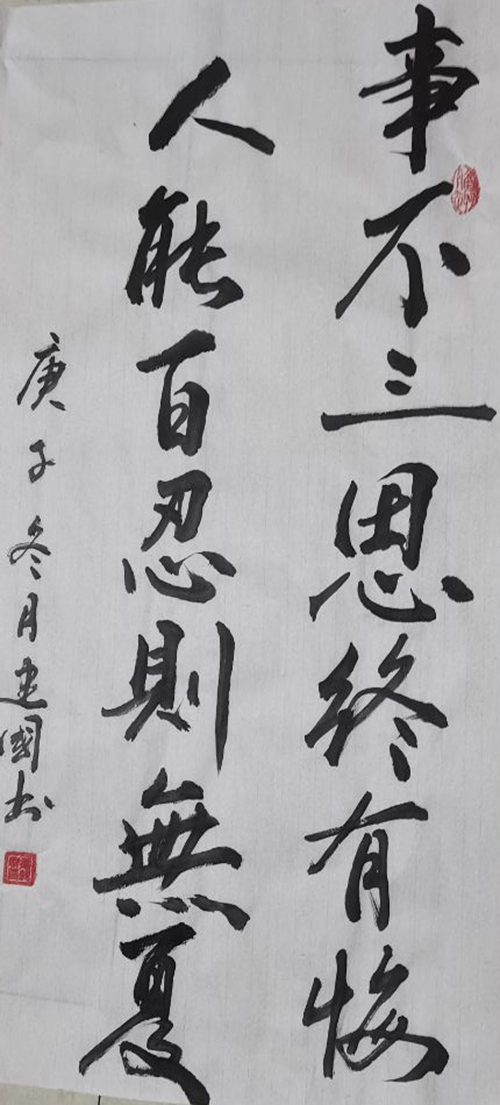 事不三思終有悔
人能百忍則無憂
庚子冬月建國书